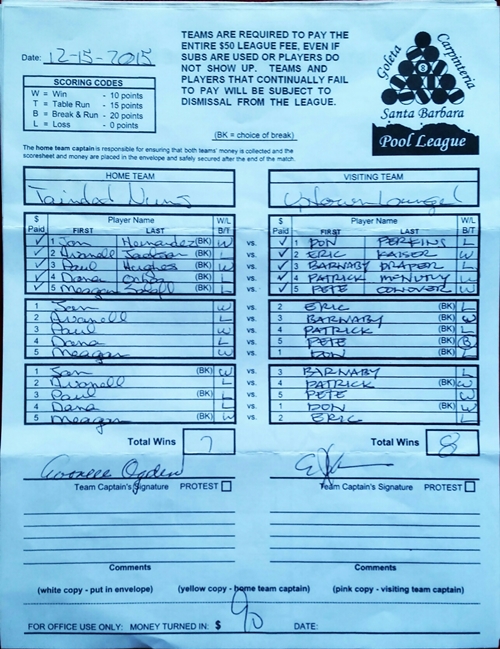 Date: 12-15-2015
TEAMS ARE REQUIRED TO PAY THE
ENTIRE $50 LEAGUE FEE, EVEN IF
SUBS ARE USED OR PLAYERS DO
NOT SHOW UP. TEAMS AND
PLAYERS THAT CONTINUALLY FAIL
TO PAY WILL BE SUBJECT TO
DISMISSAL FROM THE LEAGUE.
Goleta Carpinteria
Santa Barbara
Pool League
SCORING CODES
W = Win - 10 points
T = Table Run - 15 points
B = Break & Run - 20 points
L = Loss - 0 points
(BK = choice of break)
The home team captain is responsible for ensuring that both teams' money is collected and the
scoresheet and money are placed in the envelope and safely secured after the end of the match.
HOME TEAM VISITING TEAM
$ Paid Player Name FIRST LAST W/L B/T $ Paid Player Name FIRST LAST W/L B/T
1 Jan Hernandez (BK) W vs. 1 DON PERKINS L
2 Avanell Jackson (BK) L vs. 2 ERIC KAISER W
3 Paul Hughes (BK) W vs. 3 BARNABY DRAPER L
4 Dana (BK) L vs. 4 PATRICK MCNULTY W
5 Meagan (BK) L vs. 5 PETE CONOVER W
1 Jan W vs. 2 ERIC (BK) L
2 Avanell L vs. 3 BARNABY (BK) W
3 Paul W vs. 4 PATRICK (BK) L
4 Dana L vs. 5 PETE (BK) B
5 Meagan W vs. 1 DON (BK) L
1 Jan (BK) W vs. 3 BARNABY L
2 Avanell L vs. 4 PATRICK (BK) W
3 Paul (BK) L vs. 5 PETE W
4 Dana L vs. 1 DON (BK) W
5 Meagan (BK) W vs. 2 ERIC L
Total Wins 7 Total Wins 8
Ogden
Team Captain's Signature PROTEST Team Captain's Signature PROTEST
Comments Comments
(white copy - put in envelope) (yellow copy - home team captain) (pink copy - visiting team captain)
FOR OFFICE USE ONLY: MONEY TURNED IN: $ 90 DATE: